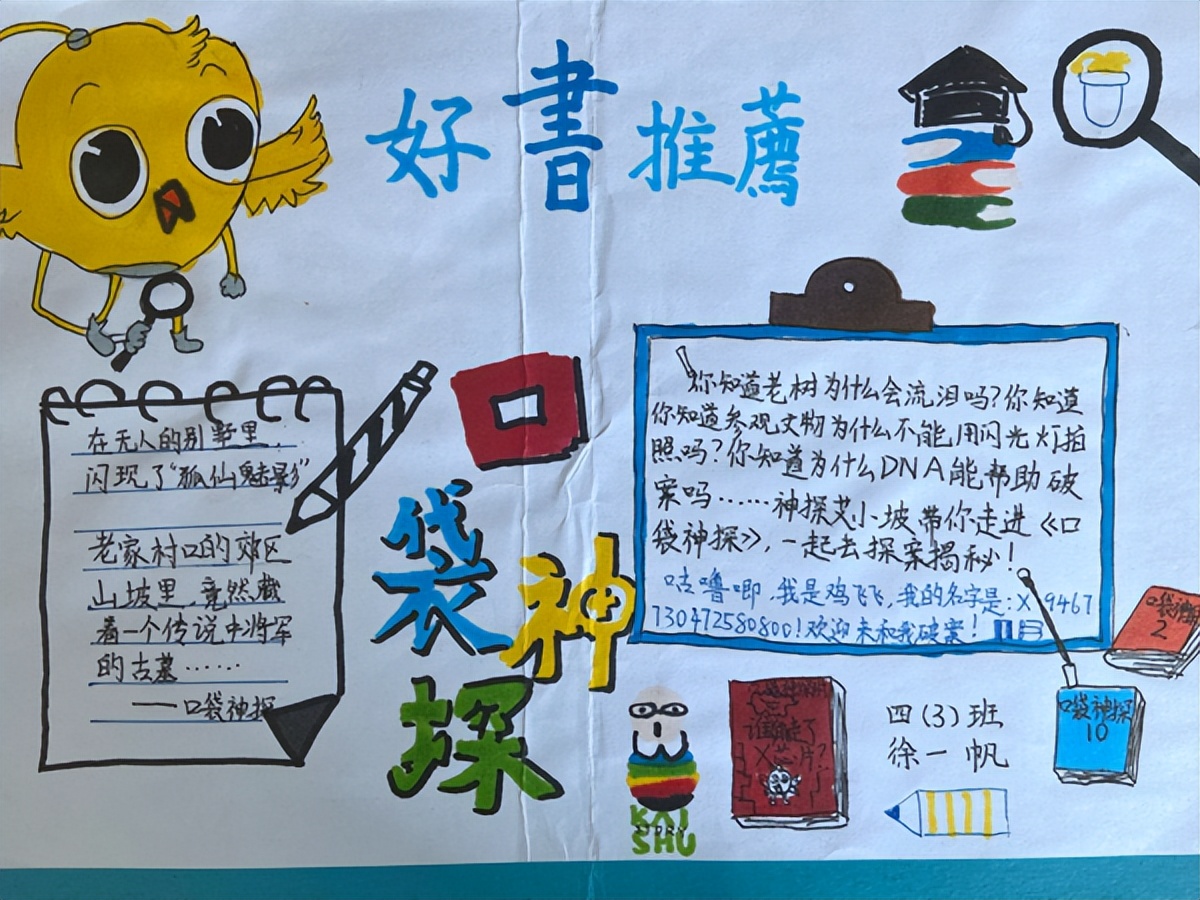 好書推薦
在无人的别墅里，
闪现了“狐仙魅影”
老家村口的郊区
山坡里，竟然藏
着一个传说中将军
的古墓……
——口袋神探
口袋神探
你知道老树为什么会流泪吗？你知道
你知道参观文物为什么不能用闪光灯拍
照吗？你知道为什么DNA能帮助破
案吗……神探艾小坡带你走进《口
袋神探》，一起去探案揭秘！
咕噜唧，我是鸡飞飞，我的名字是：X 9467
13047258080！欢迎来和我破案！
口袋神探
2
口袋神探
10
谁偷走了
X芯片？
四(3)班
徐一帆
KAI
STORY
SHU